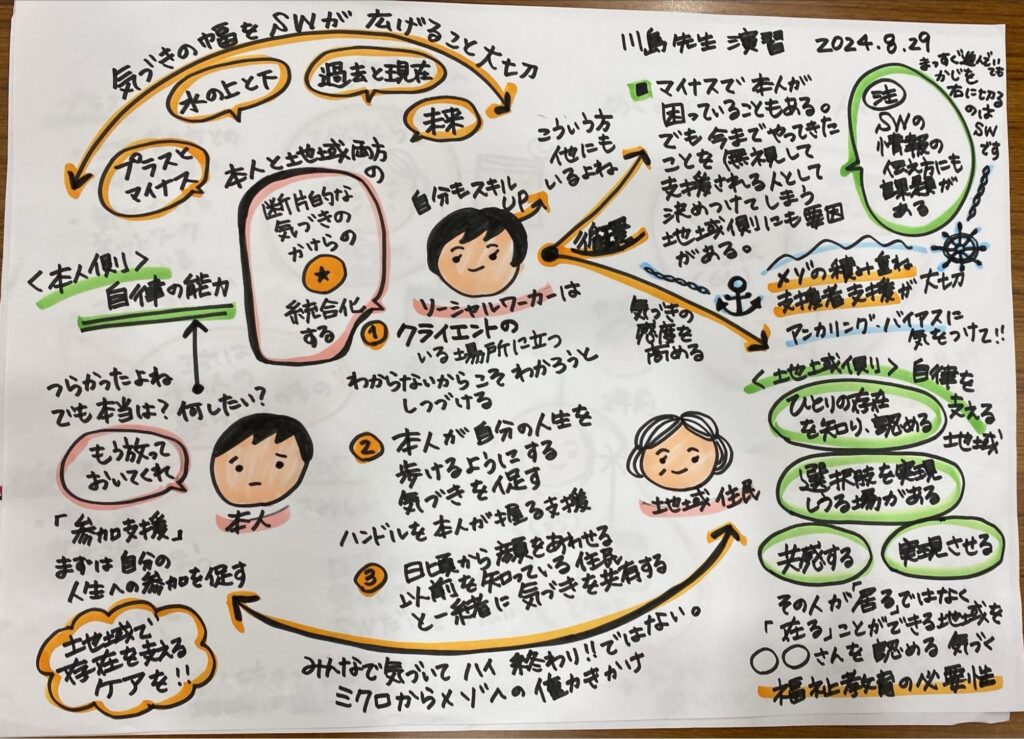 気づきの幅をSWが広げること大切
川島先生 演習 2024.8.29
氷の上と下
過去と現在
未来
プラスと
マイナス
本人と地域両方の
断片的な
気づきの
かけらの
★
統合化
する
自分もスキル
UP
こういう方
他にも
いるよね
循環
気づきの
密度を
高める
■マイナスで本人が
困っていることもある。
でも今までやってきた
ことを(無視して
支援される人として
決めつけてしまう
地域側にも要因
がある。
注
SWの
情報の
伝え方にも
がある
まっすぐ進んでいても
かじを
右に切る
のは
SW
です
メゾの積み重ね
支援者支援が大切
アンカリング・バイアスに
気をつけて!!
<本人側>
自律の能力
ソーシャルワーカーは
1 クライエントの
いる場所に立つ
わからないからこそわかろうと
しつづける
2 本人が自分の人生を
歩けるようにする
気づきを促す
ハンドルを本人が握る支援
3 日頃から顔をあわせる
以前を知っている住民
と一緒に気づきを共有する
つらかったよね
でも本当は?何したい?
もう放って
おいてくれ
本人
「参加支援」
まずは自分の
人生への参加を促す
地域で
存在を支える
ケアを!!
地域住民
みんなで気づいてハイ終わり!!ではない。
ミクロからメゾへの働きかけ
<地域側>自律を
支える
地域
ひとりの存在
を知り、認める
選択肢を実現
しうる場がある
共感する
実現させる
その人が「居る」ではなく
「在る」ことができる地域を
○○さんを認める 気づく
福祉教育の必要性